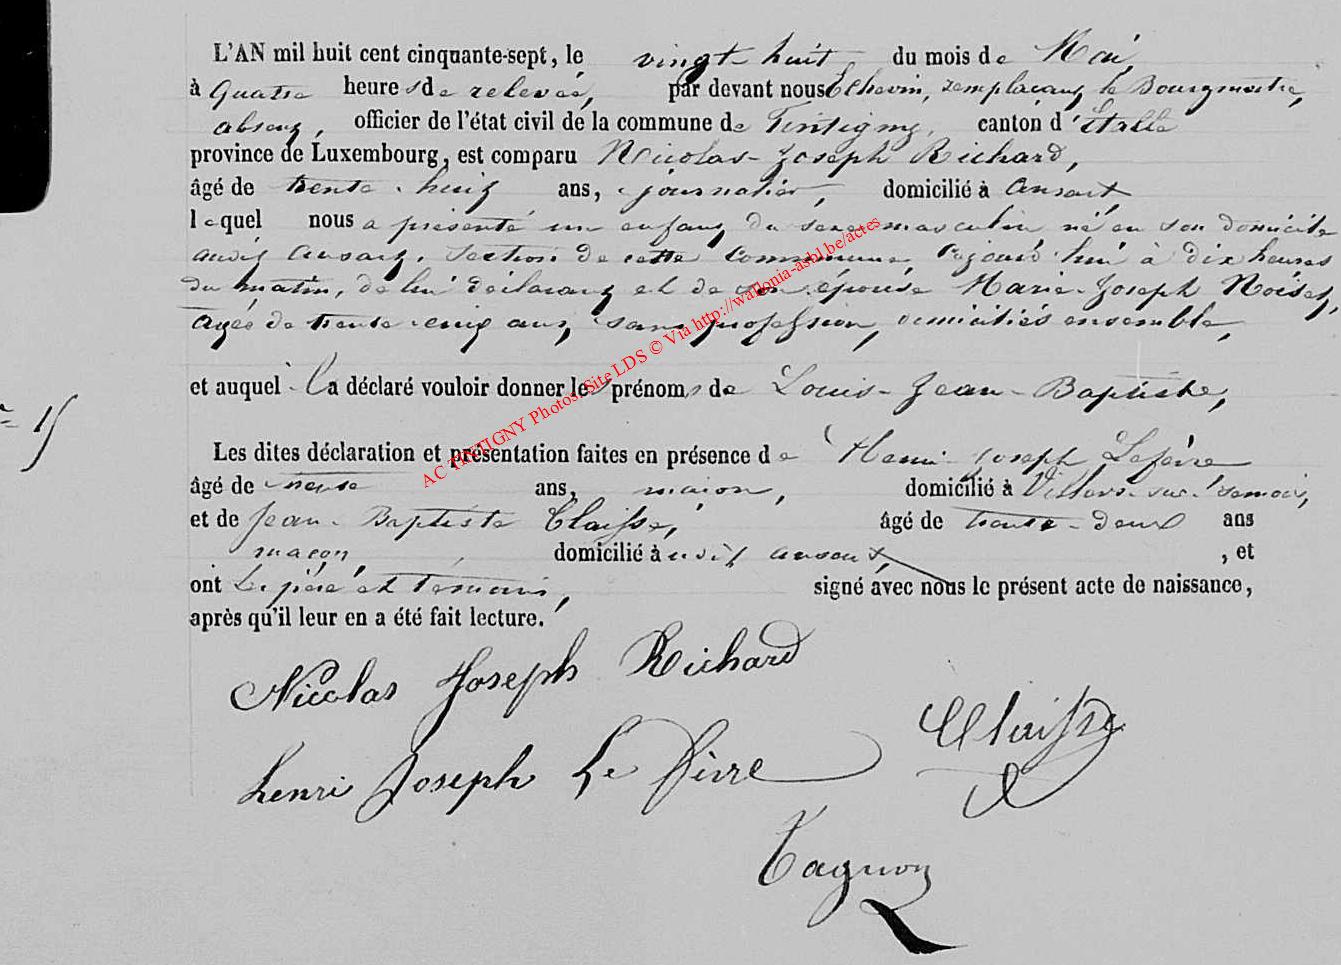 L'AN mil huit cent cinquante-sept, le vingt-huit du mois de Mai,
à quatre heures de relevée, par devant nous Echevin, remplaçant le Bourgmestre,
absent, officier de l'état civil de la commune de Tintigny, canton d'Etalle
province de Luxembourg, est comparu Nicolas-Joseph Richard,
âgé de trente-huit ans, journalier, domicilié à ansart
lequel nous a présenté un enfant du sexe masculin né en son domicile
audit ansart, section de cette commune, aujourd'hui à dix heures
du matin, de lui déclarant et de son épouse Marie-Joseph Noiset,
agée de trente-cinq ans, sans profession, domiciliés ensemble,
et auquel il a déclaré vouloir donner les prénoms de Louis-Jean-Baptiste,
= 15
Les dites déclaration et présentation faites en présence de Henri-Joseph Lefèvre
âgé de trente ans, maçon, domicilié à Villers-sur-semois,
et de Jean-Baptiste Claisse, âgé de trente-deux ans
maçon, domicilié à udit ansart, , et
ont le père et témoins, signé avec nous le présent acte de naissance,
après qu'il leur en a été fait lecture.
Nicolas Joseph Richard
Claisse
henri Joseph Le Fèvre
Tagnon
AC TINTIGNY Photos Site LDS © Via http://wallonia-asbl.be/actes